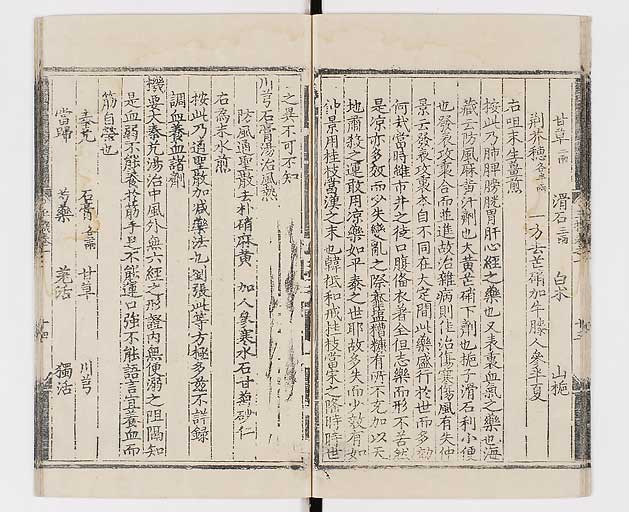 甘草二兩 滑石三兩 白朮 山梔
荊芥穗各半兩 一方去芒硝加牛膝人參半夏
右㕮咀末生薑煎
按此乃肺脾膀胱胃肝心經之藥也又表裏血氣之藥也海
藏云防風麻黃汗劑也大黃芒硝下劑也梔子滑石利小便
也發表攻裏合而並進故治雜病則佳治傷寒傷風有失仲
景云發表攻裏本自不同在大定間此藥盛行於世而多効
何哉當時雖市井之徒口腹備衣著全但志樂而形不苦然
是涼亦多効而少失變亂之際藜糟糠有所不充加以天
地肅殺之運敢用涼藥如平泰之世耶故多失而少效有如
仲景用桂枝當漢之末也韓祗和戒桂枝當宋之隆時時世
之異不可不知
川芎石膏湯治風熱
防風通聖散去朴硝麻黃 加人參寒水石甘菊砂仁
右爲末水煎
按此乃通聖散加減藥法也劉張此等方極多茲不詳錄
調血養血諸劑
機要大秦艽湯治中風外無六經之形證內無便溺之阻隔知
是血弱不能養於筋手足不能運口強不能語言宜養血而
筋自榮也
秦艽 石膏各二兩 甘草 川芎
當歸 芍藥 羌活 獨活
十四